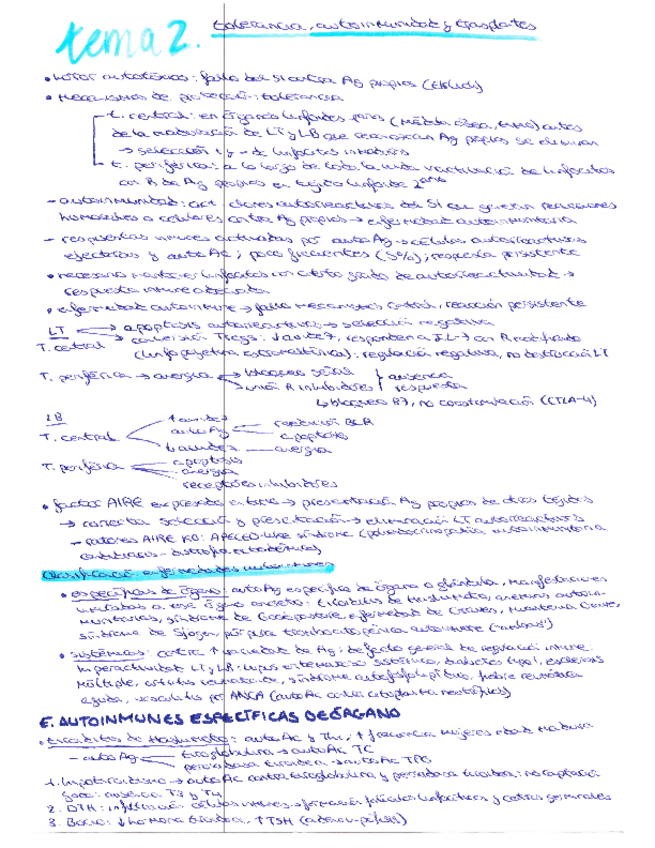 tema 2. tolerancia, autoinmunidad y trasplantes
• horror autotóxicus: fallo del SI contra Ag propios (Ehrlich)
• Mecanismos de protección: tolerancia
t. central: en órganos linfoides 1arios (Médula ósea, timo) antes
de la maduración de LT y LB que reconozcan Ag propios se eliminan
→ selección + y - de linfocitos inmaduros
t. periférica: a lo largo de toda la vida inactivación de linfocitos
con R de Ag propios en tejido linfoide 2ario
- autoinmunidad: act. clones autorreactivos del SI que generan reacciones
humorales o celulares contra Ag propios → enfermedad autoinmunitaria
- respuestas inmunes activadas por autoAg → células autorreactivas
efectoras y autoAc; poco frecuentes (5%); respuesta persistente
• necesario mantener linfocitos con cierto grado de autorreactividad →
respuesta inmune adecuada
• enfermedad autoinmune → fallo mecanismos control, reacción persistente
LT → apoptosis autorreactivos → selección negativa
T. central → conversión Tregs: ↓ avidez, responden a IL-7 con R modificado
(linfopoyetina estromal tímica): regulación negativa, no destrucción LT
T. periférica → anergia bloqueo señal ausencia
unión R inhibidores respuesta
↳ bloqueo B7, no coestimulación (CTLA-4)
LB ↑ avidez
T. central autoAg reedición BCR
apoptosis
↓ avidez anergia
T. periférica apoptosis
anergia
receptores inhibidores
• factor AIRE expresado en timo → presentación Ag propios de otros tejidos
→ correcta selección y presentación → eliminación LT autorreactivos
- ratones AIRE KO: APECED-like síndrome (poliendocrinopatía autoinmunitaria
candidiasis - distrofia ectodérmica)
Clasificación enfermedades autoinmunes
• específicas de órgano: autoAg específica de órgano o glándula, manifestaciones
limitadas a ese órgano concreto: tiroiditis de Hashimoto, anemias autoin-
munitarias, síndrome de Goodpasture, enfermedad de Graves, miastenia Grave,
síndrome de Sjogen, púrpura trombocitopénica autoinmune
• sistémicas: contra ↑ variedad de Ag; defecto general de regulación inmune:
hiperactividad LT y LB: lupus eritematoso sistémico, diabetes tipo I, esclerosis
múltiple, artritis reumatoide, síndrome antifosfolipídico, fiebre reumática
aguda, vasculitis por ANCA (autoAc contra citoplasma neutrófilos)
E. AUTOINMUNES ESPECÍFICAS DE ÓRGANO
• tiroiditis de Hashimoto: autoAc y Th1, ↑ frecuencia mujeres edad madura
- autoAg tiroglobulina → autoAc TG
peroxidasa tiroidea → autoAc TPO
1. hipotiroidismo → autoAc contra tiroglobulina y peroxidasa tiroidea: no captación
iodo: ausencia T3 y T4
2. DTH: infiltración células inmunes → formación folículos linfocíticos y centros germinales
3. Bocio: ↓ hormona tiroidea, ↑ TSH (adenohipófisis)